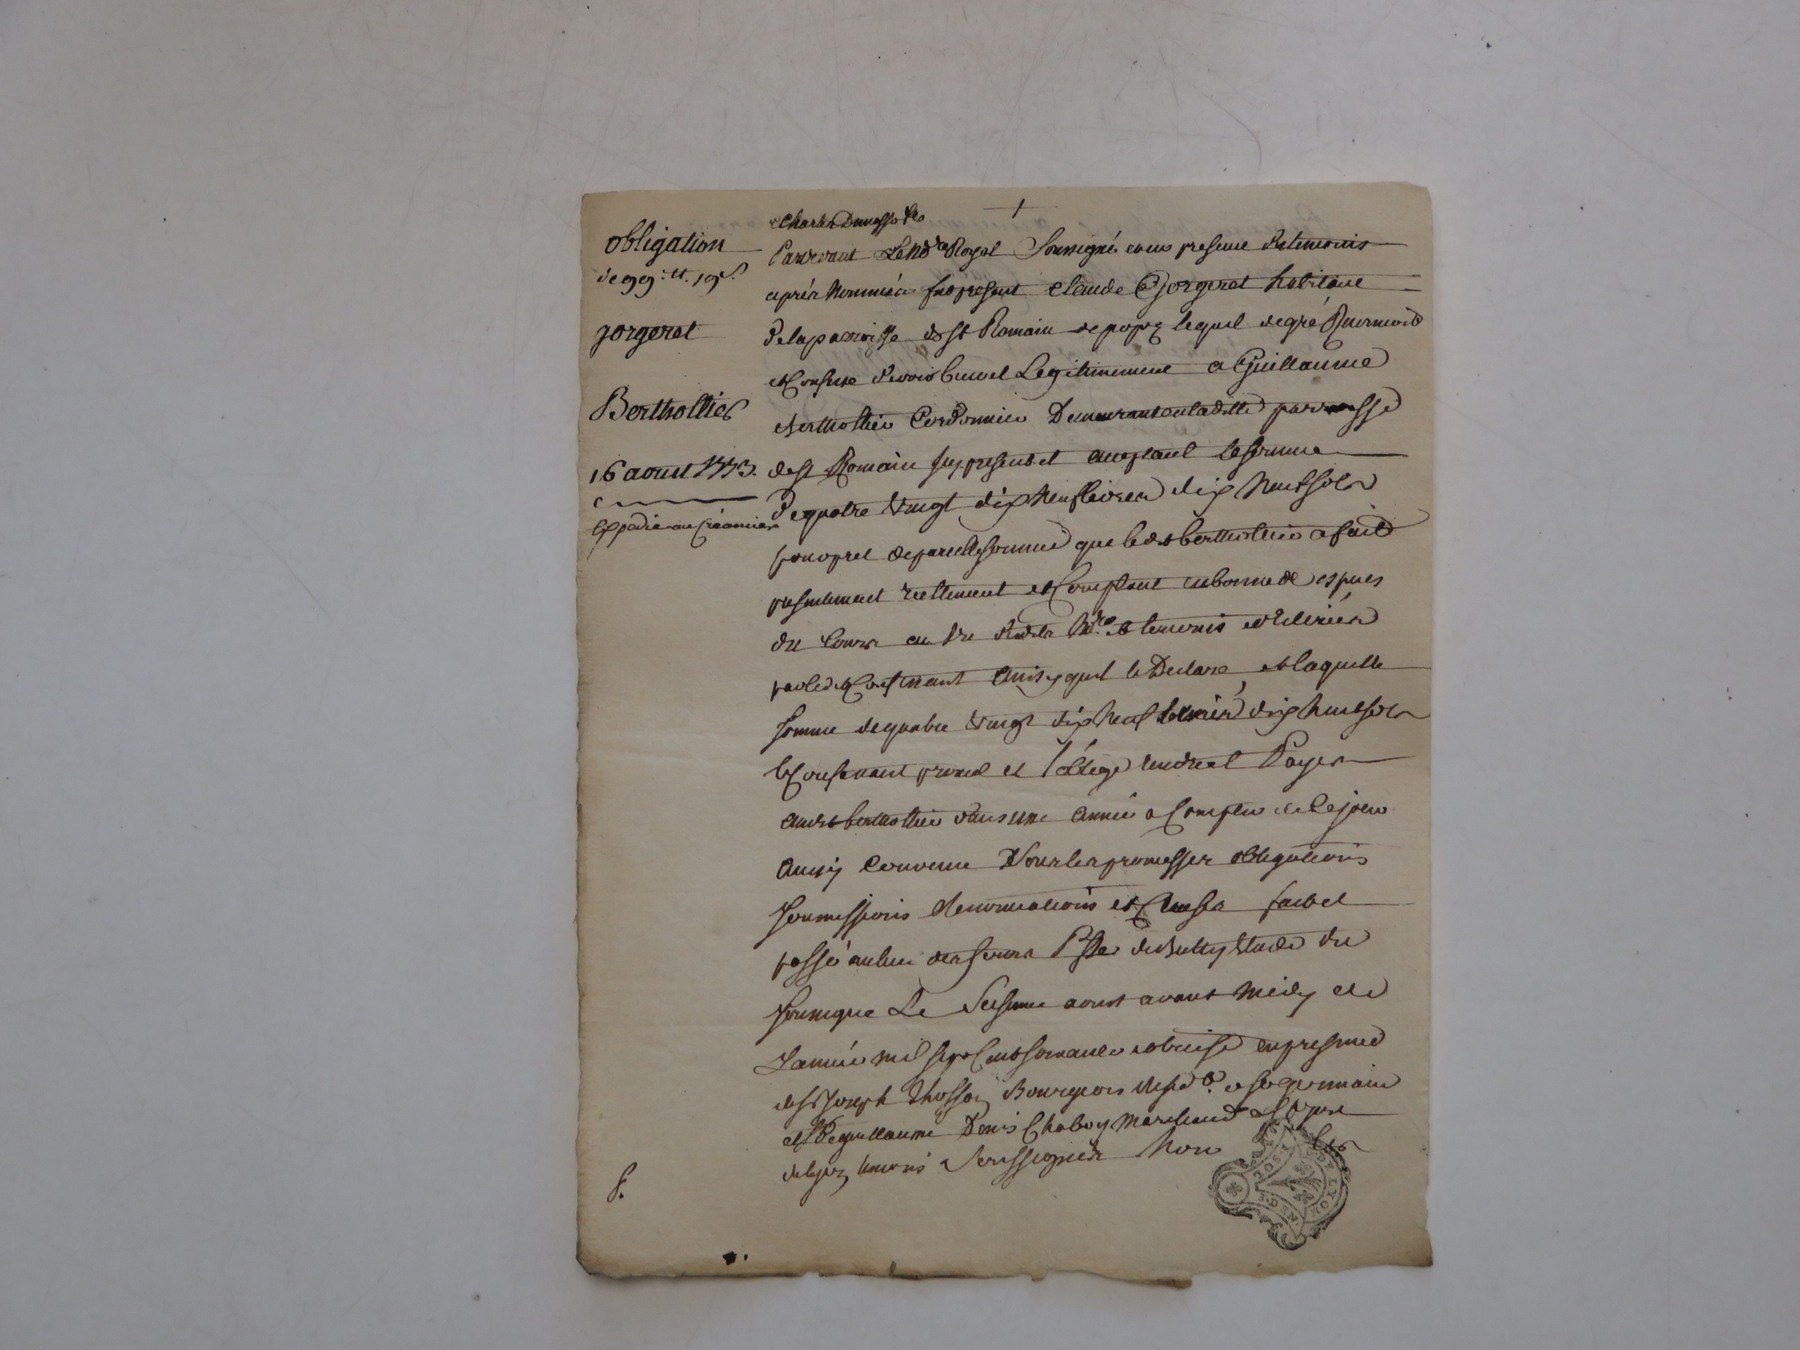 obligation
de 99 ₶ 19 s.
gorgeret
Berthollier
16 aoust 1773.
Expedié au Créancier
Pardevant Le No.re Royal Soussigné en presence des temoins
après Nommés fut present Claude Gorgeret habitant
de la parroisse de St Romain de popez lequel de gré
et Confesse devoir bien et Legitimement a Guillaume
Berthollier Cordonnier Demeurant en la ditte parroisse
de St Romain icy present et acceptant la somme
de quatre vingt dix Neuf livres dix huit sols
pour pret de pareille somme que led. berthollier a fait
presentement reellement et Comptant en bonnes especes
du Cours au vu dud. No.re et temoins et delivrés
par led. Confessant ainsy quil le Declare, et laquelle
somme de quatre vingt dix Neuf livres dix huit sols
le Confessant promet et s'oblige rendre et Payer
aud. berthollier dans une année a Compter de Ce jour
Ainsy Convenu Sous les promesses obligations
soumissions renonciations et Clauses fait et
passé au lieu de Etude du
soussigné Le Seizieme aoust avant midy de
L'année mil sept Cent soixante et treize en presence
de Sr Joseph Bourgeois de St germain
et Sr guillaume Denis Chaboy marchand
de lyon temoins Soussignés Non
GEN. DE LYON